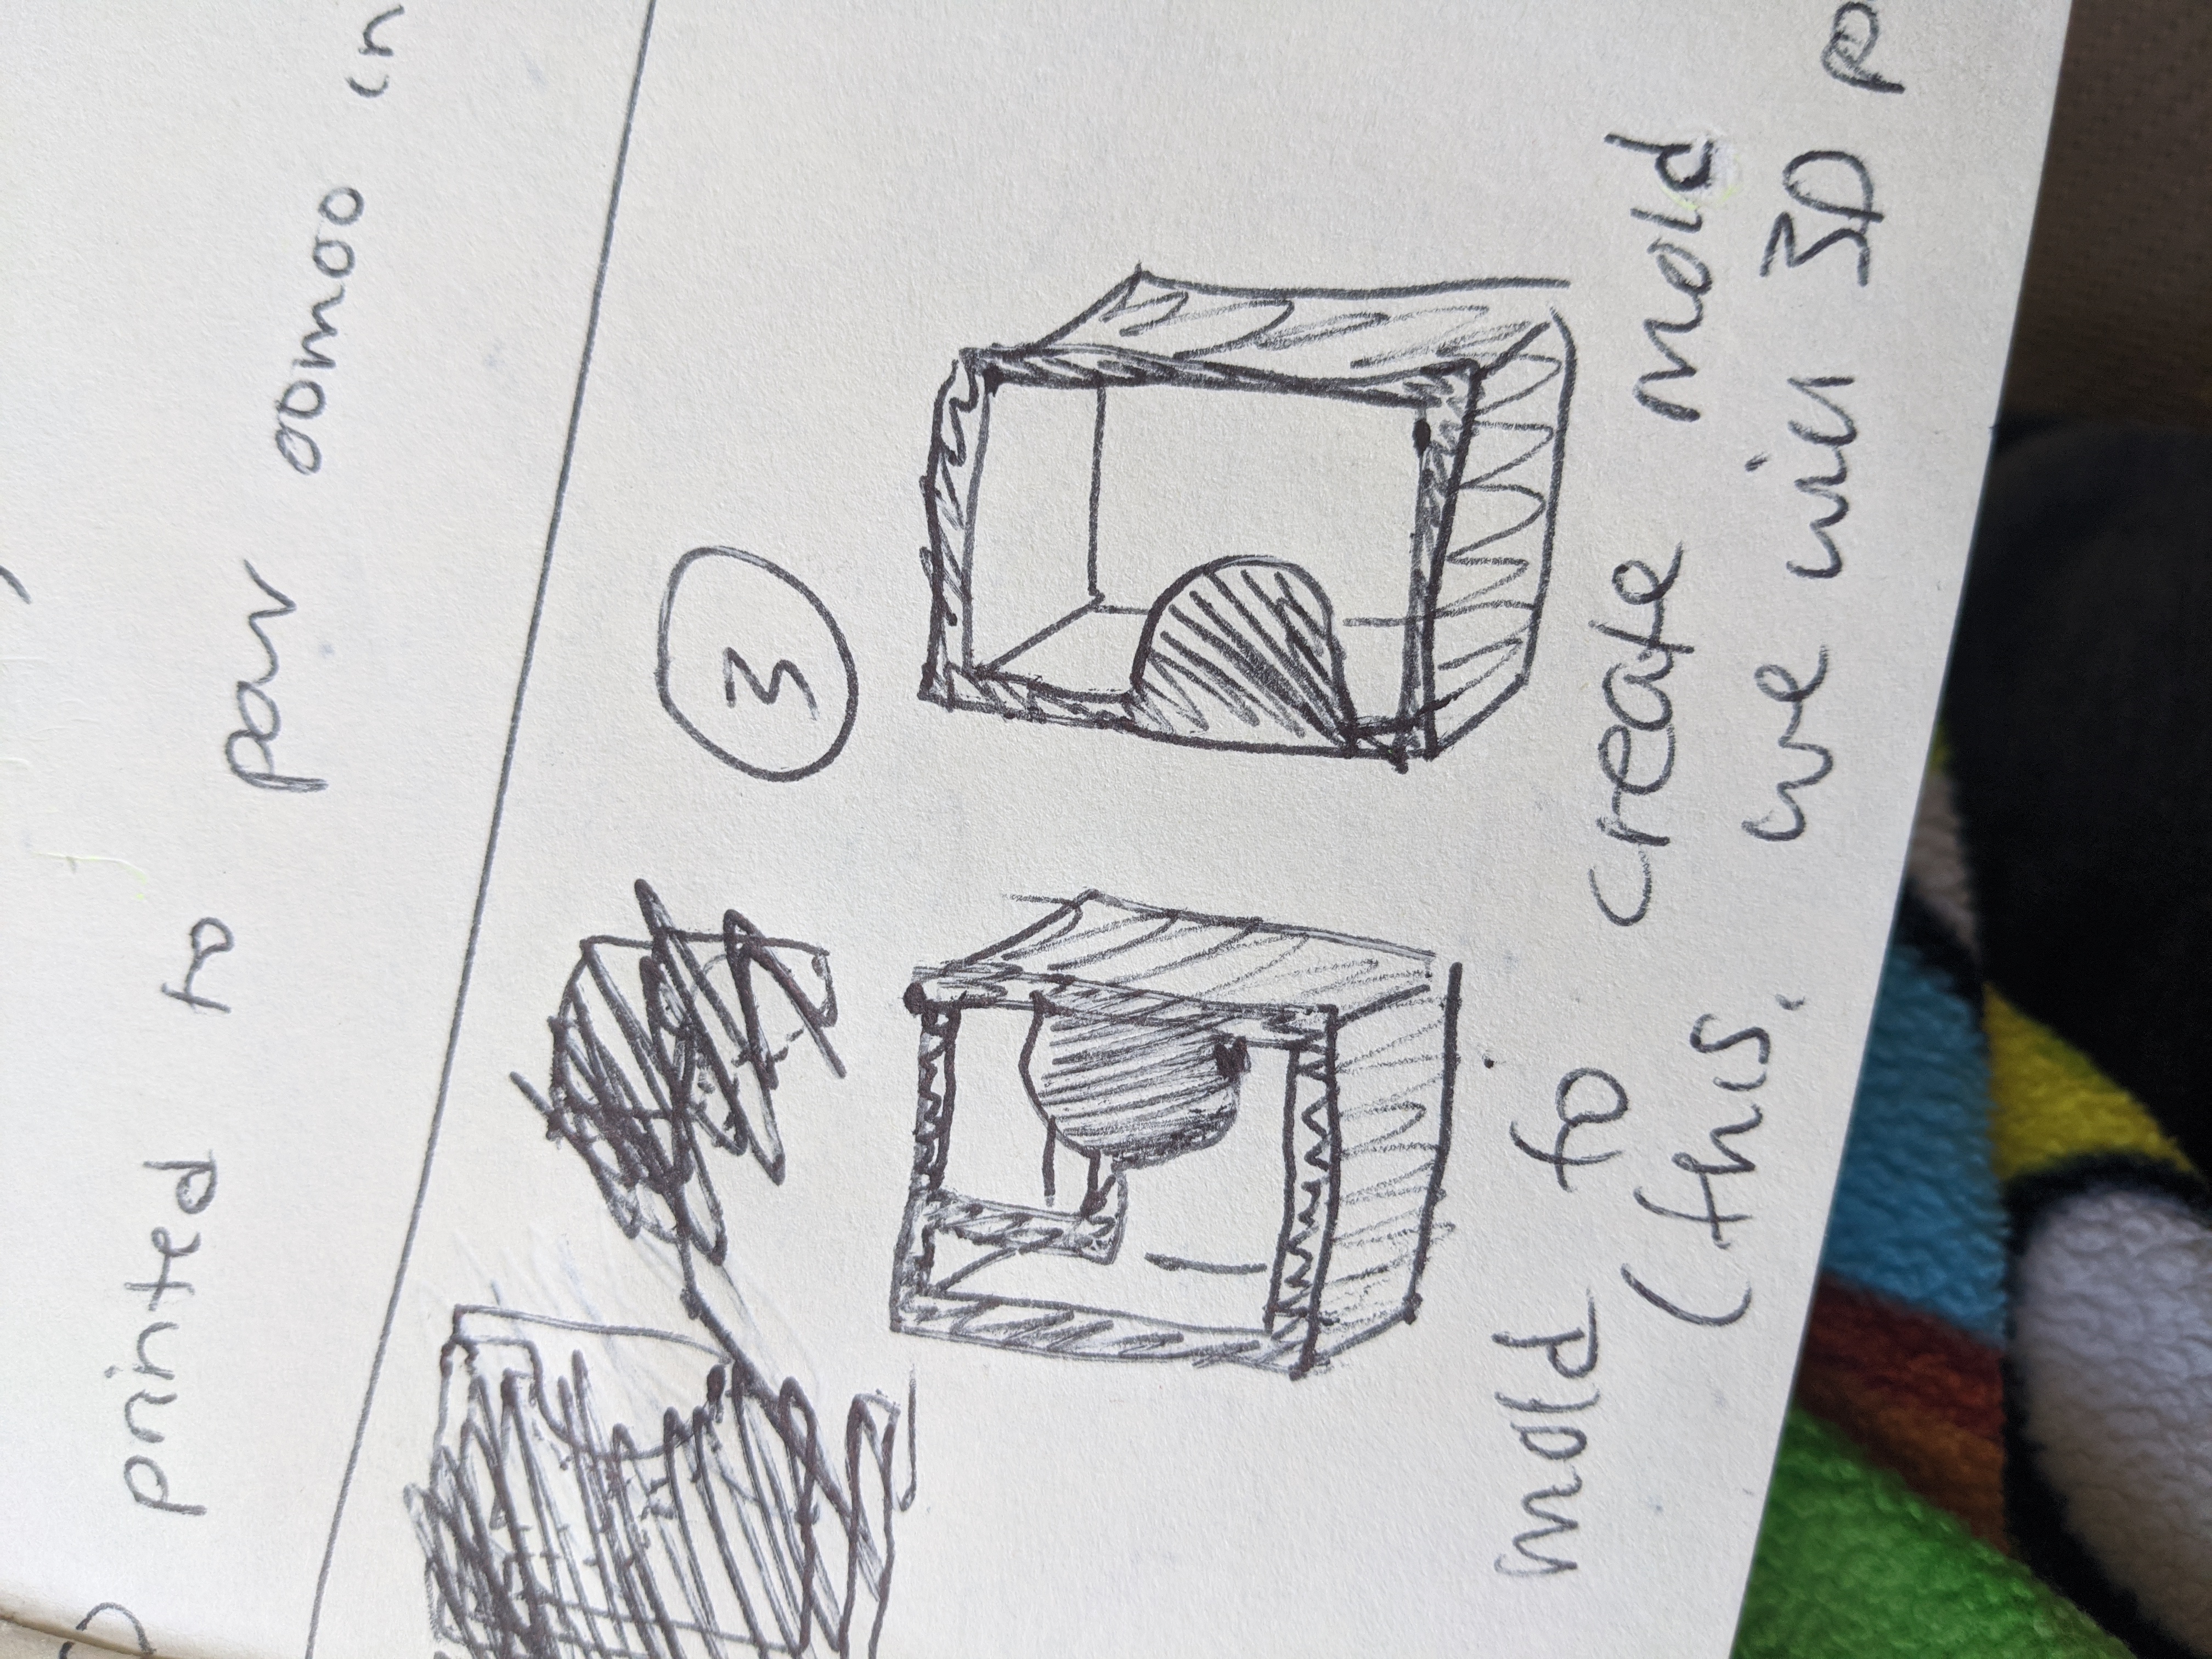 printed to pour oomoo in
3
mold to create mold
(this, we will 3D